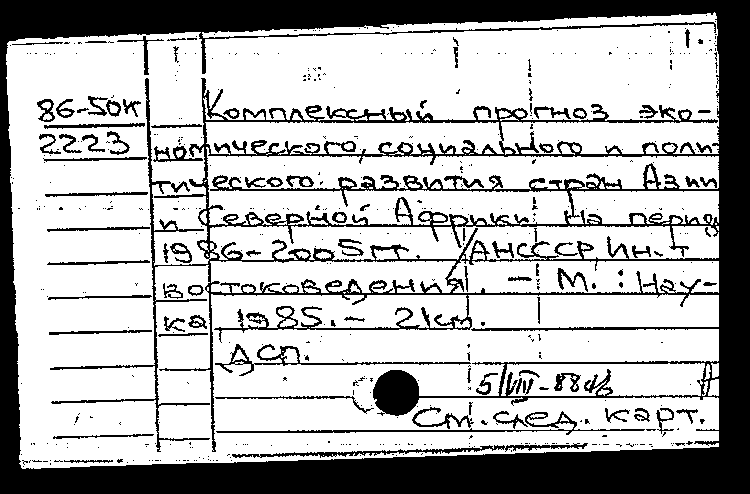 1.
86-50к Комплексный прогноз эко-
2223 номического, социального и поли-
тического развития стран Азии
и Северной Африки на период
1986-2005гг. / АНСССР, Ин-т
востоковедения. - М.: Нау-
ка 1985. - 2 кн.
ДСП.
5/VIII-88
См. след. карт.